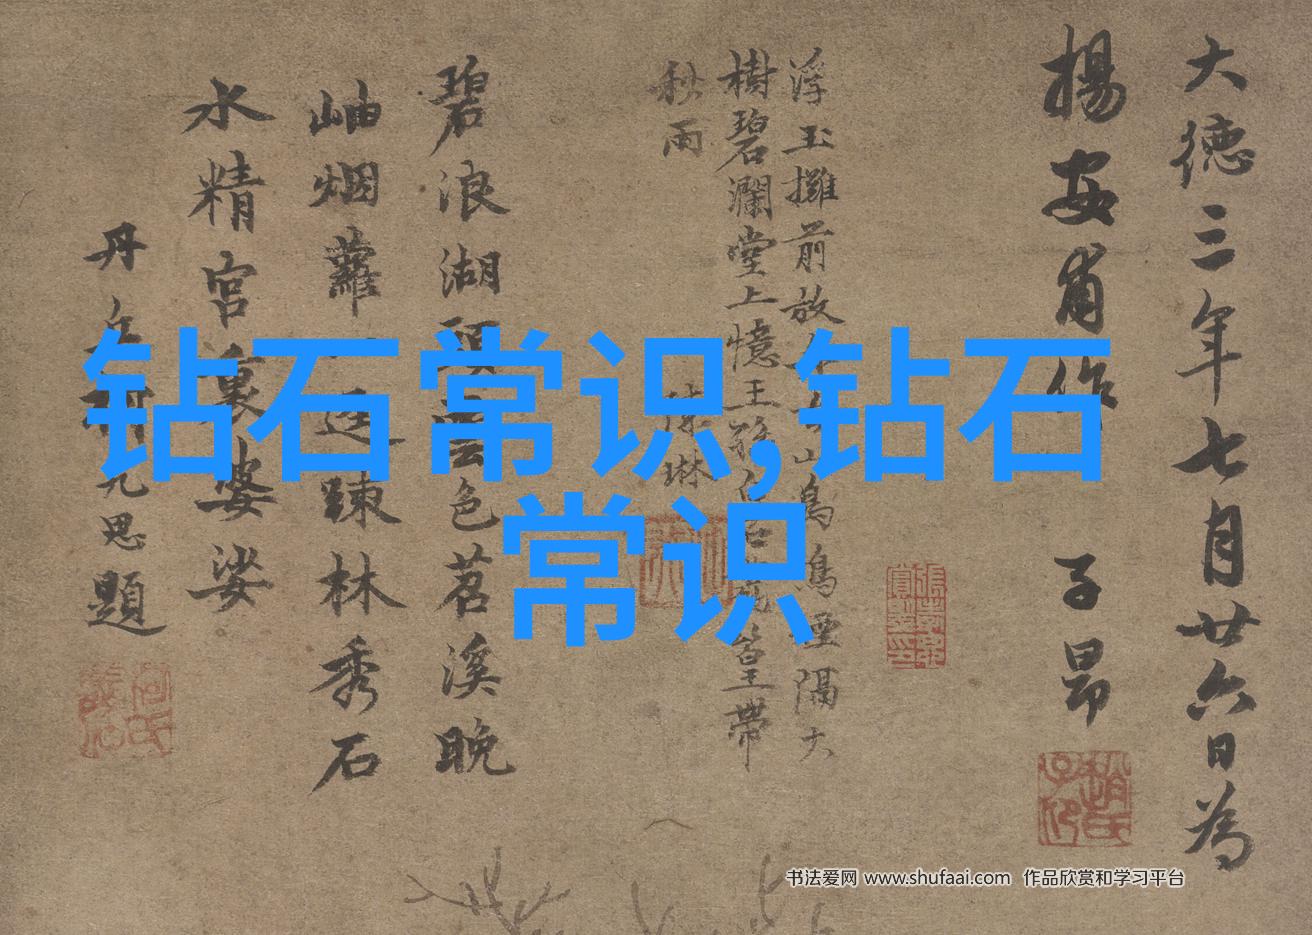 大德三年七月廿六日為
揚安甫作 子昂
浮玉攤前放 山鳥 鳥煙隔大
樹碧瀾堂上憶王 皇帶
秋雨
陳琳
碧浪湖頭雲色苕溪晚
岫烟蘿 逕踈林秀石
水精宮裏婆娑
丹丘柯九思題
钻石常识,钻石
常识
书法爱网 www.shufaai.com 作品欣赏和学习平台